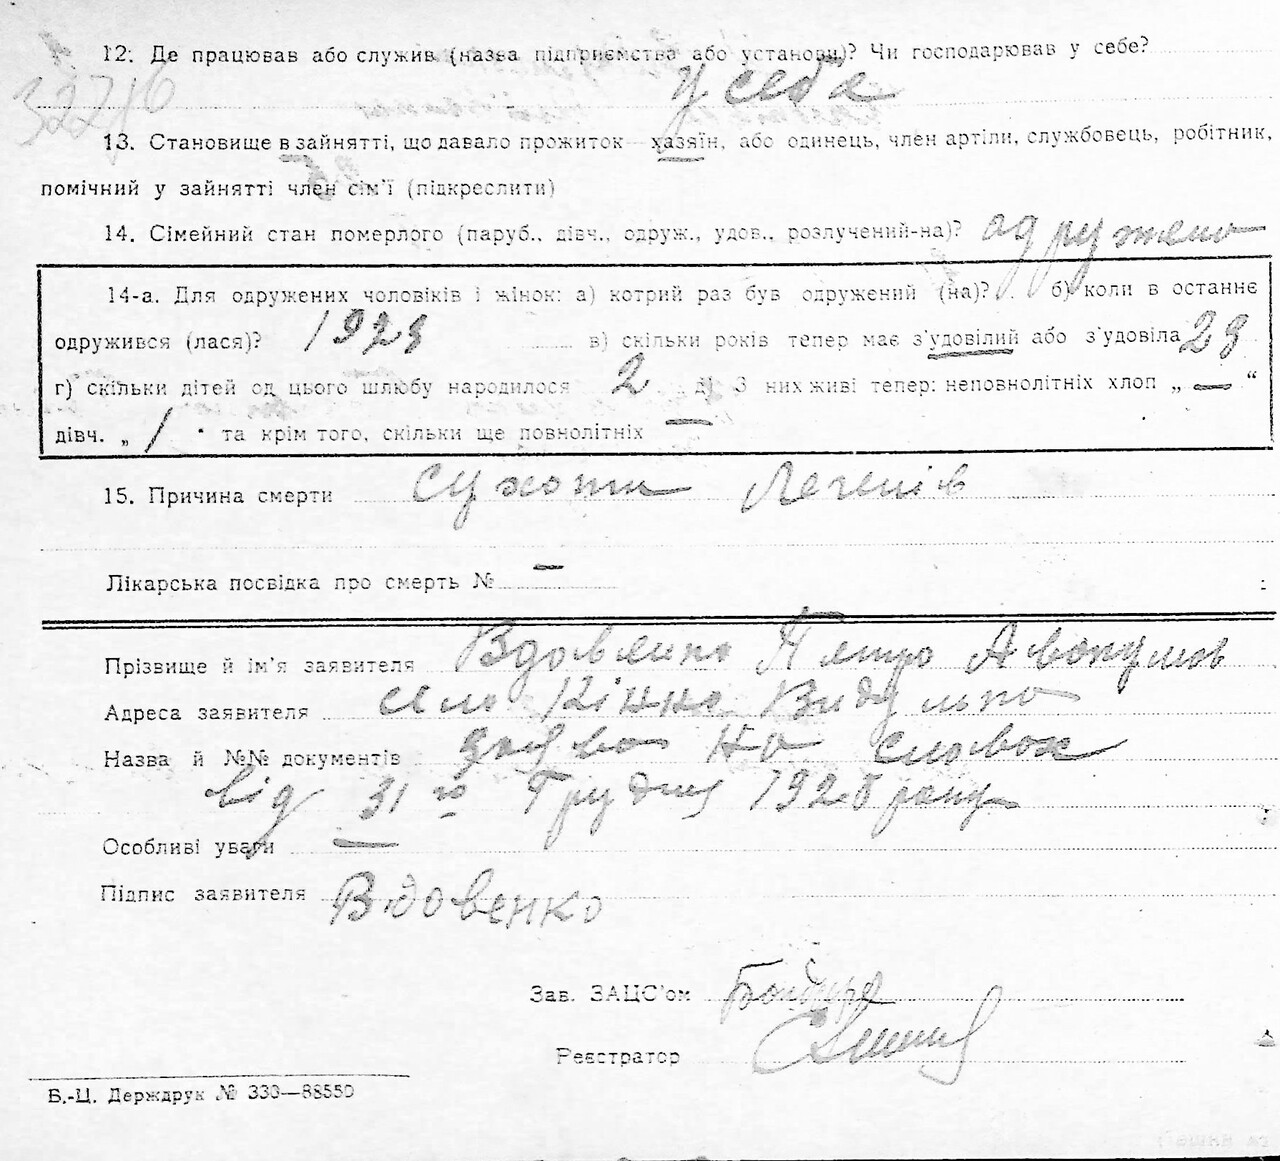 12. Де працював або служив (назва підприємства або установи)? Чи господарював у себе?
у себе
13. Становище в зайнятті, що давало прожиток — хазяїн, або одинець, член артіли, службовець, робітник,
помічний у зайнятті член сім'ї (підкреслити)
14. Сімейний стан померлого (паруб., дівч., одруж., удов., розлучений-на)? одружено
14-а. Для одружених чоловіків і жінок: а) котрий раз був одружений (на)? б) коли в останнє
одружився (лася)? 1923 в) скільки років тепер має з'удовілий або з'удовіла 23
г) скільки дітей од цього шлюбу народилося 2 д) З них живі тепер: неповнолітніх хлоп „ — “
дівч. „ 1 “ та крім того, скільки ще повнолітніх —
15. Причина смерти сухоти легенів
Лікарська посвідка про смерть № —
Прізвище й ім'я заявителя Вдовенко Петро
Адреса заявителя село
Назва й №№ документів словах
від 31го Грудня 1928 року
Особливі уваги —
Підпис заявителя Вдовенко
Зав. ЗАЦС'ом
Реєстратор
Б.-Ц. Держдрук № 330—88550